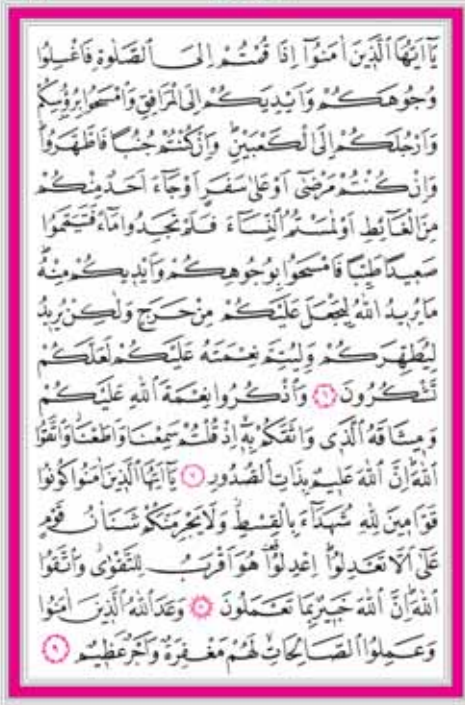 يَآ اَيُّهَا الَّذِينَ اٰمَنُوٓا اِذَا قُمْتُمْ اِلَى الصَّلٰوةِ فَاغْسِلُوا
وُجُوهَكُمْ وَاَيْدِيَكُمْ اِلَى الْمَرَافِقِ وَامْسَحُوا بِرُؤُ۫سِكُمْ
وَاَرْجُلَكُمْ اِلَى الْكَعْبَيْنِۜ وَاِنْ كُنْتُمْ جُنُبًا فَاطَّهَّرُواۜ
وَاِنْ كُنْتُمْ مَرْضٰٓى اَوْ عَلٰى سَفَرٍ اَوْ جَٓاءَ اَحَدٌ مِنْكُمْ
مِنَ الْغَٓائِطِ اَوْ لٰمَسْتُمُ النِّسَٓاءَ فَلَمْ تَجِدُوا مَٓاءً فَتَيَمَّمُوا
صَعِيدًا طَيِّبًا فَامْسَحُوا بِوُجُوهِكُمْ وَاَيْدِيكُمْ مِنْهُۜ
مَا يُرِيدُ اللّٰهُ لِيَجْعَلَ عَلَيْكُمْ مِنْ حَرَجٍ وَلٰكِنْ يُرِيدُ
لِيُطَهِّرَكُمْ وَلِيُتِمَّ نِعْمَتَهُ عَلَيْكُمْ لَعَلَّكُمْ
تَشْكُرُونَ ﴿٦﴾ وَاذْكُرُوا نِعْمَةَ اللّٰهِ عَلَيْكُمْ
وَمِيثَاقَهُ الَّذِي وَاثَقَكُمْ بِهِٓ اِذْ قُلْتُمْ سَمِعْنَا وَاَطَعْنَاۘ وَاتَّقُوا
اللّٰهَۜ اِنَّ اللّٰهَ عَلِيمٌ بِذَاتِ الصُّدُورِ ﴿٧﴾ يَآ اَيُّهَا الَّذِينَ اٰمَنُوا كُونُوا
قَوَّامِينَ لِلّٰهِ شُهَدَٓاءَ بِالْقِسْطِۘ وَلَا يَجْرِمَنَّكُمْ شَنَاٰنُ قَوْمٍ
عَلٰٓى اَلَّا تَعْدِلُواۜ اِعْدِلُوا۠ هُوَ اَقْرَبُ لِلتَّقْوٰىۘ وَاتَّقُوا
اللّٰهَۜ اِنَّ اللّٰهَ خَبِيرٌ بِمَا تَعْمَلُونَ ﴿٨﴾ وَعَدَ اللّٰهُ الَّذِينَ اٰمَنُوا
وَعَمِلُوا الصَّالِحَاتِۙ لَهُمْ مَغْفِرَةٌ وَاَجْرٌ عَظِيمٌ ﴿٩﴾